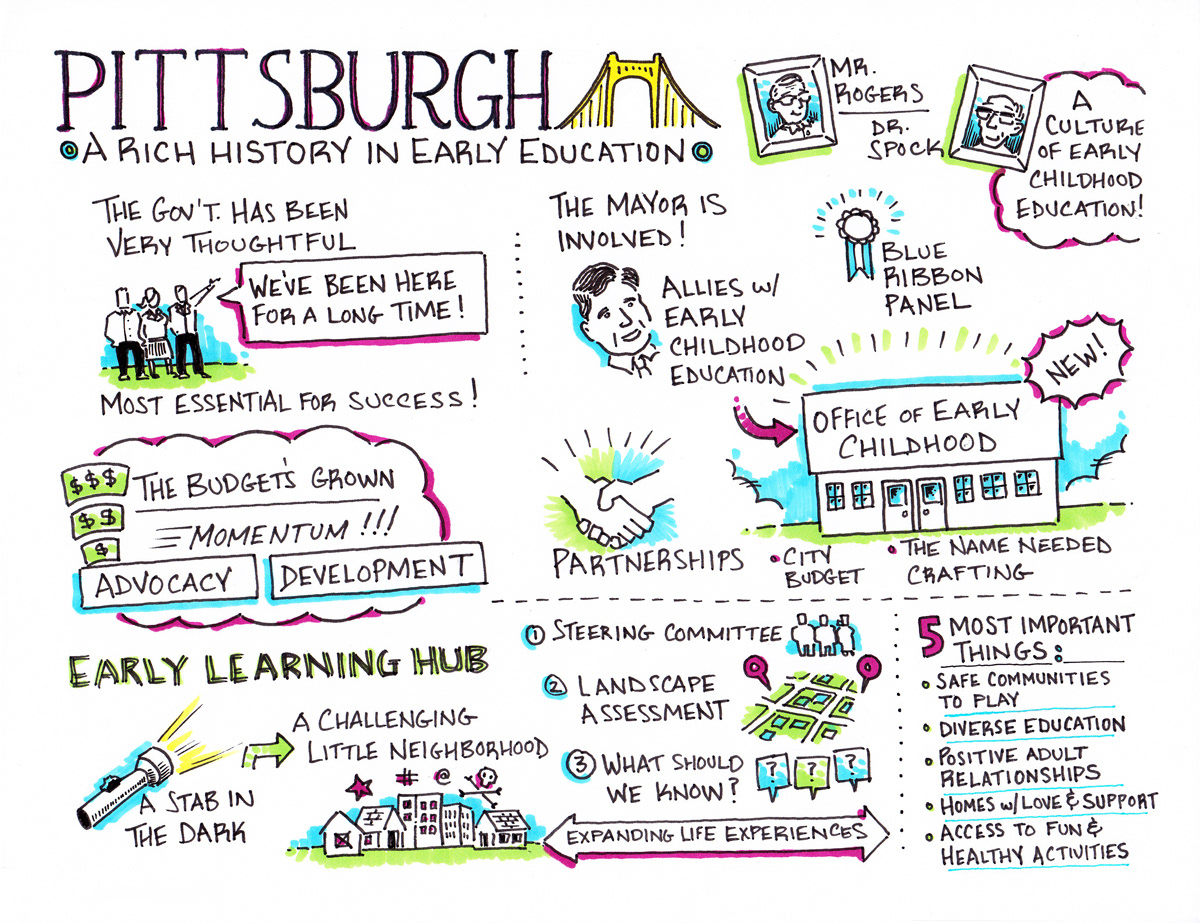 PITTSBURGH
A RICH HISTORY IN EARLY EDUCATION
MR.
ROGERS
DR.
SPOCK
A
CULTURE
OF EARLY
CHILDHOOD
EDUCATION!
THE GOV'T. HAS BEEN
VERY THOUGHTFUL
WE'VE BEEN HERE
FOR A LONG TIME!
MOST ESSENTIAL FOR SUCCESS!
THE MAYOR IS
INVOLVED!
ALLIES W/
EARLY
CHILDHOOD
EDUCATION
BLUE
RIBBON
PANEL
NEW!
OFFICE OF EARLY
CHILDHOOD
$$$
$$
$
THE BUDGET'S GROWN
MOMENTUM!!!
ADVOCACY
DEVELOPMENT
PARTNERSHIPS
• CITY
BUDGET
• THE NAME NEEDED
CRAFTING
EARLY LEARNING HUB
A STAB IN
THE DARK
A CHALLENGING
LITTLE NEIGHBORHOOD
# @
1 STEERING COMMITTEE
2 LANDSCAPE
ASSESSMENT
3 WHAT SHOULD
WE KNOW?
? ? ?
EXPANDING LIFE EXPERIENCES
5 MOST IMPORTANT
THINGS:
• SAFE COMMUNITIES
TO PLAY
• DIVERSE EDUCATION
• POSITIVE ADULT
RELATIONSHIPS
• HOMES W/LOVE & SUPPORT
• ACCESS TO FUN &
HEALTHY ACTIVITIES